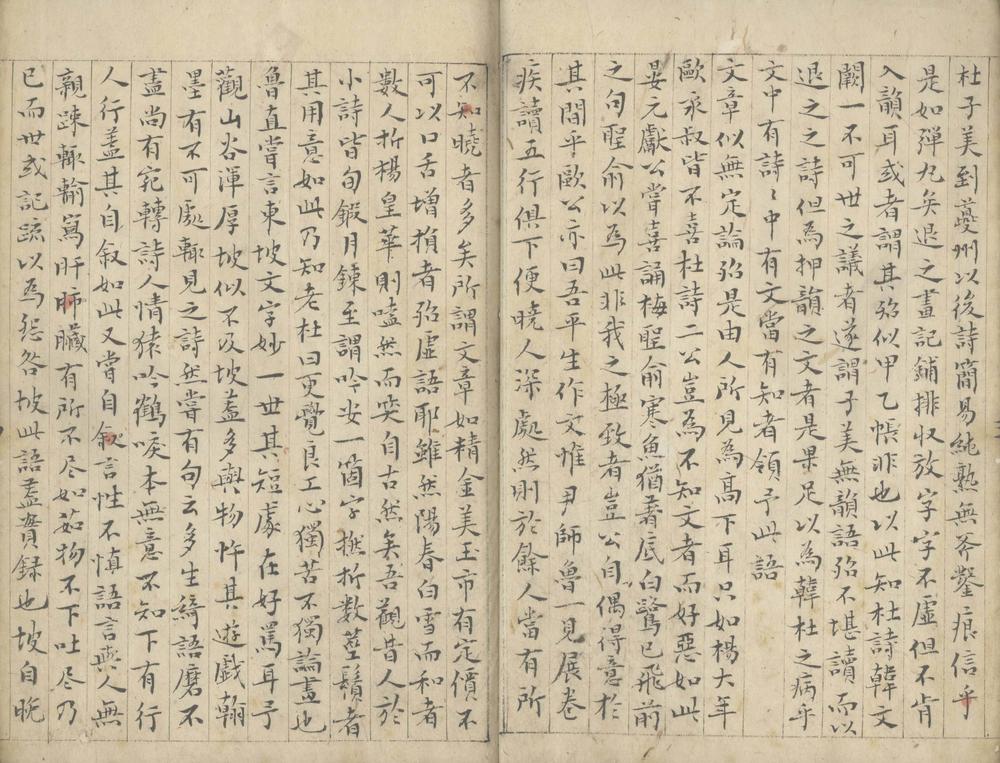 杜子美到䕫州以後詩簡易純熟無斧鑿痕信乎
是如弹丸矣退之畫記鋪排収放字字不虛但不肯
入韻耳或者謂其殆似甲乙帳非也以此知杜詩韓文
闕一不可世之議者遂謂子美無韻語殆不堪讀而以
退之之詩但為押韻之文者是果足以為韓杜之病乎
文中有詩〻中有文當有知者領予此語
文章似無定論殆是由人所見為高下耳只如楊大年
歐永叔皆不喜杜詩二公豈為不知文者而好惡如此
晏元獻公嘗喜誦梅聖俞寒魚猶著底白鷺已飛前
之句聖俞以為此非我之極致者豈公自偶得意於
其間乎歐公亦曰吾平生作文惟尹師魯一見展卷
疾讀五行俱下便曉人深處然則於餘人當有所
不知曉者多矣所謂文章如精金美玉市有定價不
可以口舌增損者殆虛語耶雖然陽春白雪而和者
數人折楊皇華則嗑然而笑自古然矣吾觀昔人於
小詩皆旬鍛月鍊至謂吟安一箇字撚折數莖鬚者
其用意如此乃知老杜曰更覺良工心獨苦不獨論畫也
魯直嘗言東坡文字妙一世其短處在好罵耳予
觀山谷渾厚坡似不及坡蓋多與物忤其遊戲翰
墨有不可處輒見之詩然嘗有句云多生綺語磨不
盡尚有宛轉詩人情猿吟鶴唳本無意不知下有行
人行蓋其自叙如此又嘗自叙言性不慎語言與人無
親踈輒輸寫肝肺臟有所不尽如茹物不下吐尽乃
已而世或記疏以為怨咎坡此語蓋實録也坡自晚